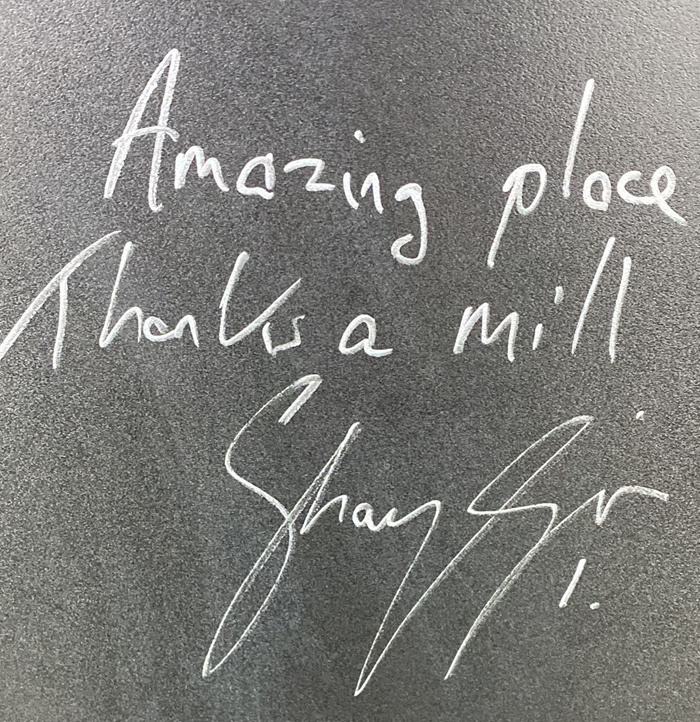 Amazing place
Thanks a mill
Shay
1.